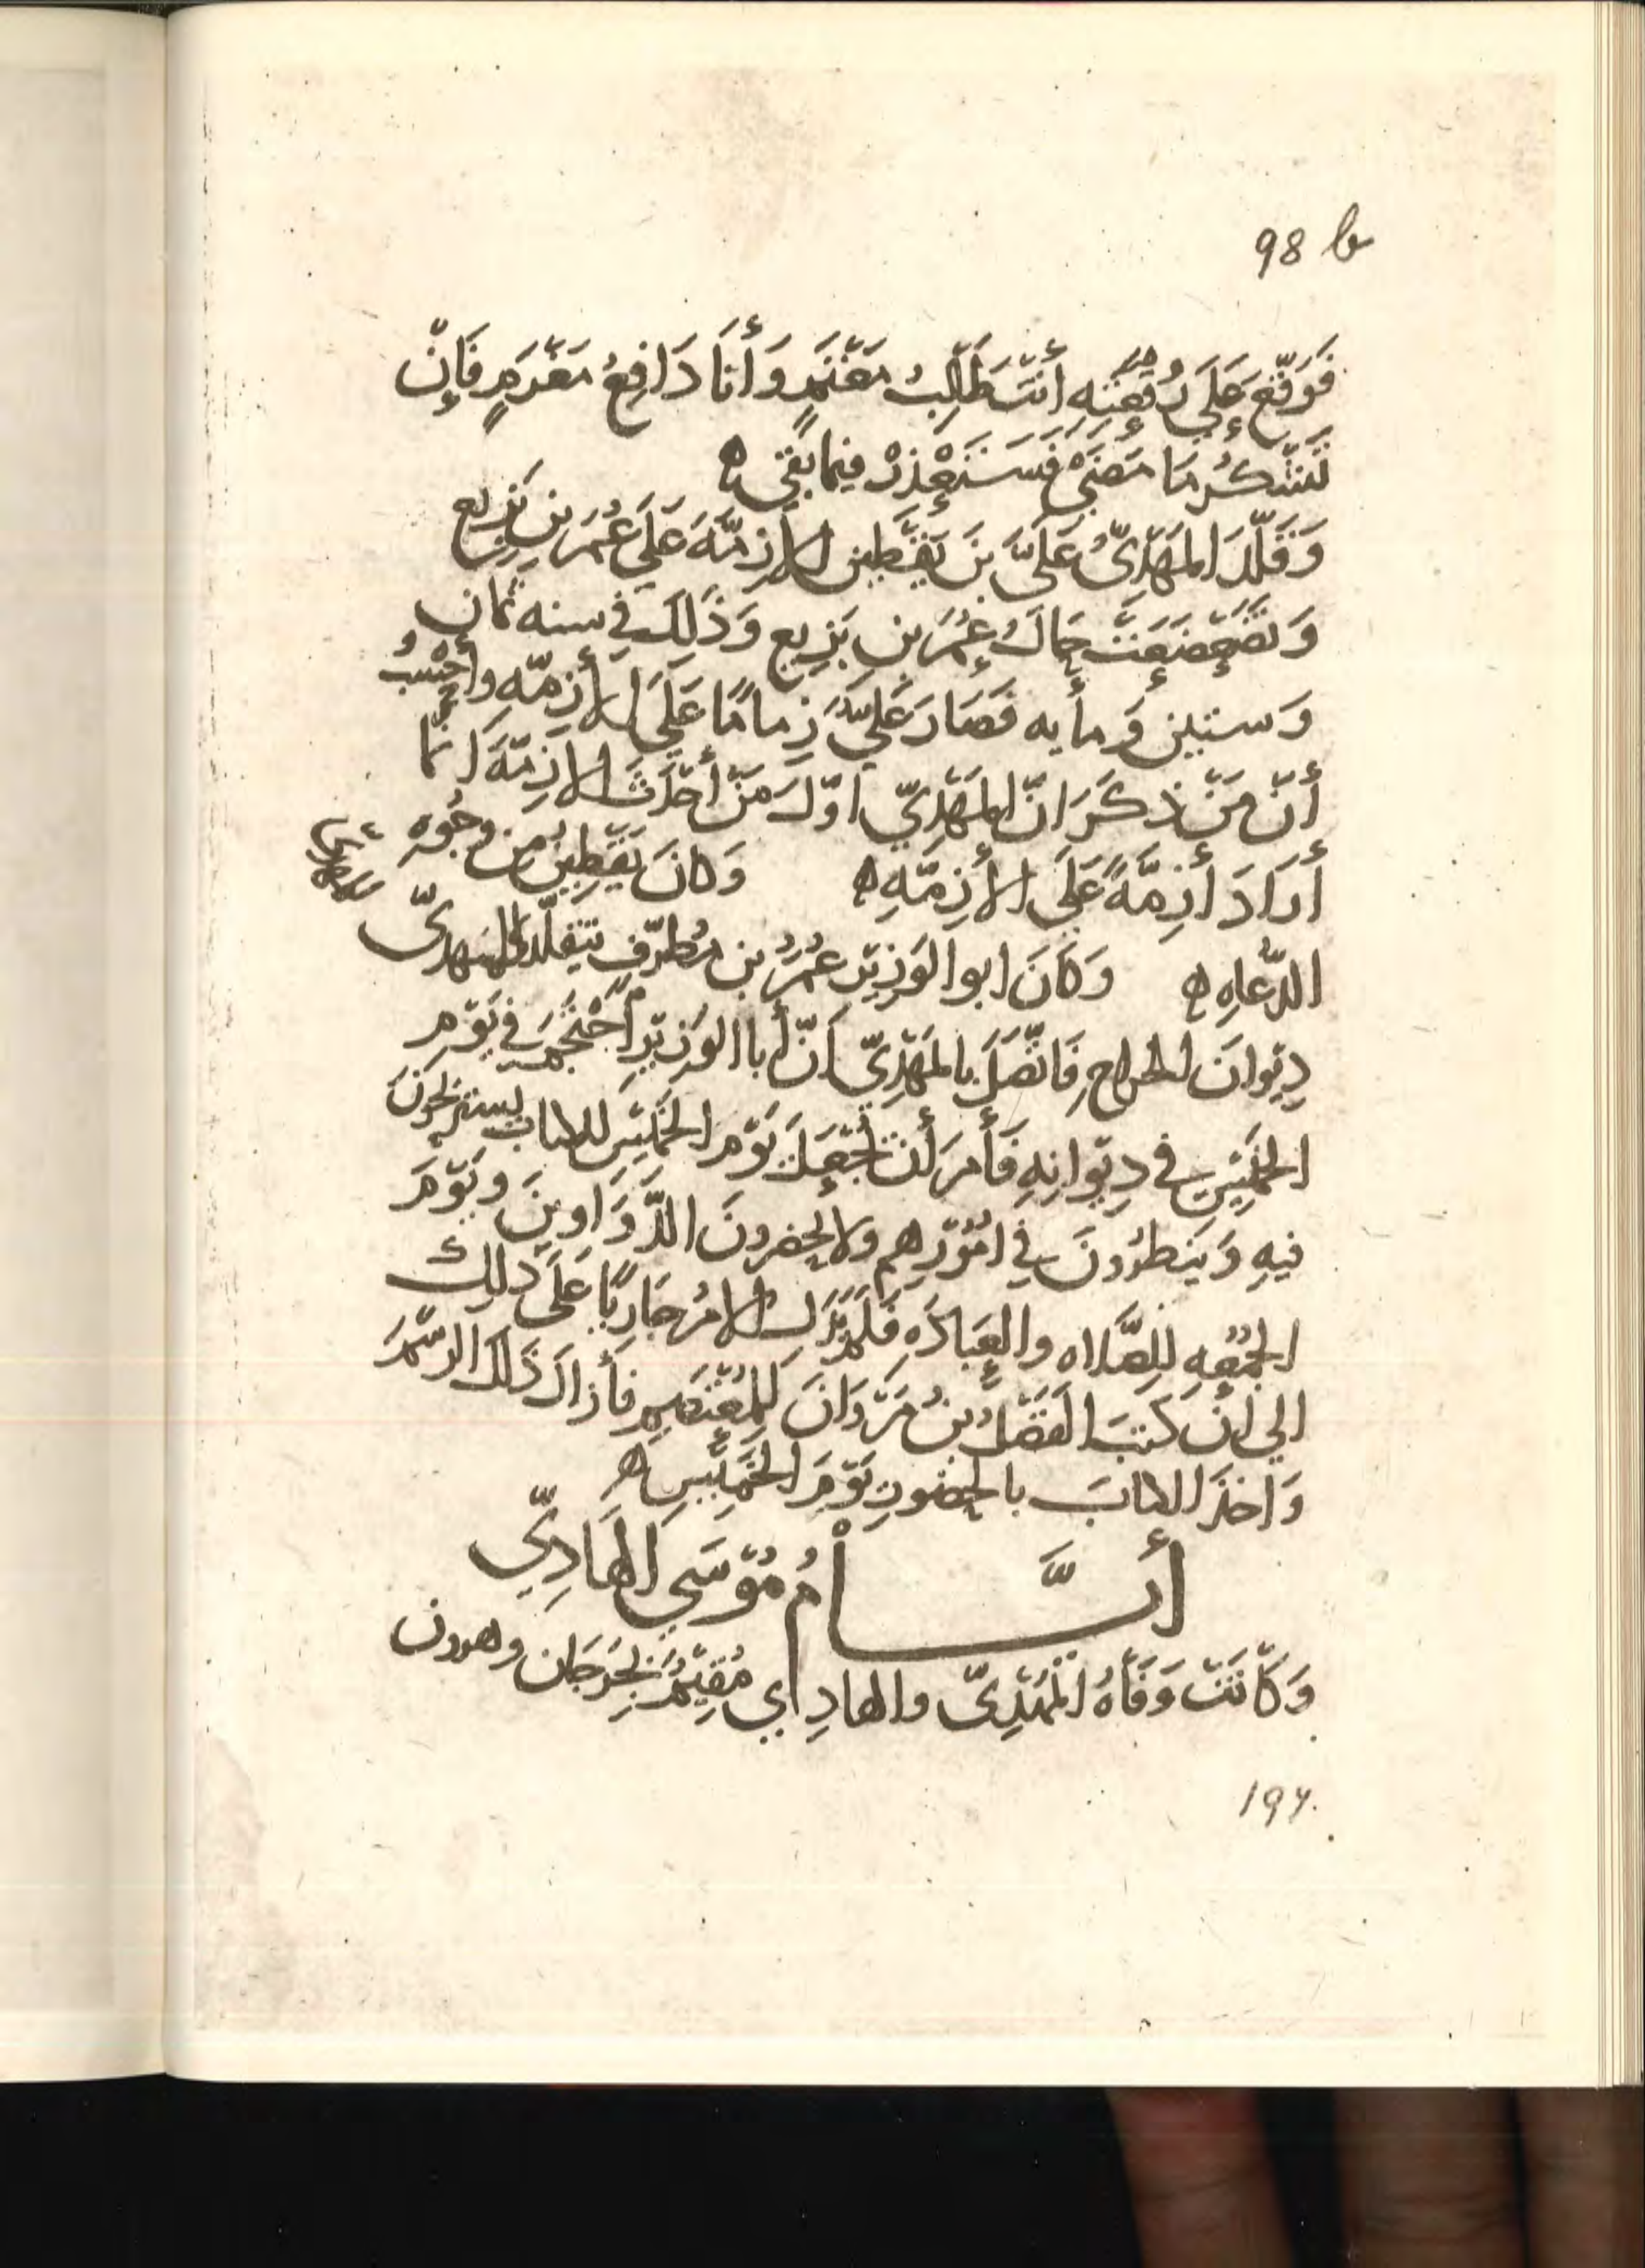 98 b
فَوَقّعَ عَلَي رُقعتِهِ أنتَ طَالِبُ مَغْنَمٍ وَأنَا دَافِعُ مَغْرَمٍ فَإنّ
تَشْكُر مَا مَضَي فَسَتعْذِرْ فيما بقي ه
وَقَلّدَ المَهْدِىُّ عَلَىَّ بنَ يَقْطِين الازِمّةَ عَلَي عُمَرَ بنِ بَزِيع
وَتَضَعْضَعَتْ حَالُ عُمَرَ بنِ بَزيع وَذَلِكَ في سنه ثمان
وَستين وَمأيه فَصَارَ عَلِيّ زِمامًا عَلَي الأزِمّهِ وأحْسبُ
أنّ مَنْ ذكَرَ انّ المَهْدِيّ اوّلَ مَنْ أحْدَثَ الازِمّةَ انما
أرَادَ أزِمَّةً عَلَي الأزِمّهِ ه وَكانَ يَقْطِينُ من وجُوهِ
الدّعاهِ ه وَكَانَ ابو الوَزيْر عُمَرُ بن مُطرّفٍ يتقلّد للمهدىّ
دِيْوانَ الخراج فَاتّصَلَ بالمَهْدِيّ أنّ أبا الوَزيْرِ احْتَجَمَ في يَوْمِ
الخَمِيْسِ في دِيْوانِهِ فَأمَرَ أن تُجْعَلَ يَوْم الخَمِيْسِ للكتاب يستريحُونَ
فيهِ وَينظرُونَ في امُوْرِهم ولا يحضرونَ الدَّوَاوِينَ ويَوْمَ
الجُمُعهِ لِلصَّلاه والعِبَادَهِ فَلَمْ يَزَل الامرُ جَارِيًا عَلَى ذلِكَ
الي أنْ كَتبَ الفَضْلُ بنُ مَرْوَانَ لِلمُعْتَصِمِ فأزالَ ذَلكَ الرسْمَ
وَاخذَ الكتابَ بالحضُورِ يَوْمَ الخَمِيْسِ ه
أيَّــــامُ مُوْسَي الهَادِيّ
وَكانَتْ وَفَاهُ المَهْدِىّ والهادِي مُقِيْمٌ بجُرجَان وهرون
196.